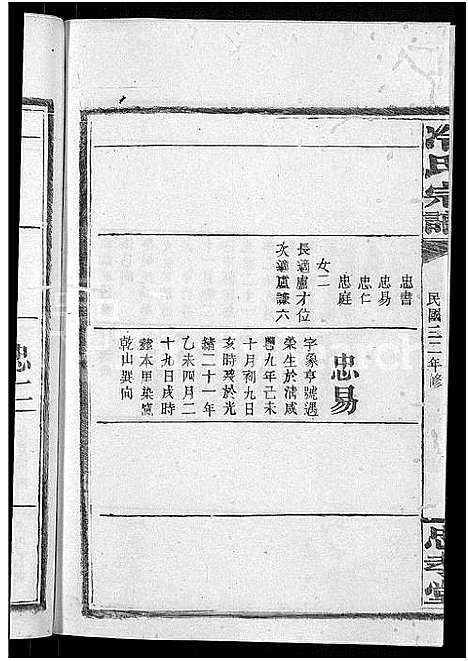 冷氏宗譜
民國三二年修
忠孝堂
忠書
忠易
忠仁
忠庭
女二
長適盧才位
次適盧謙六
忠易
字象亨號遇
榮生於清咸
豐九年己未
十月初九日
亥時歿於光
緒二十一年
乙未四月二
十九日戌時
葬本里染窠
乾山巽向
忠仁